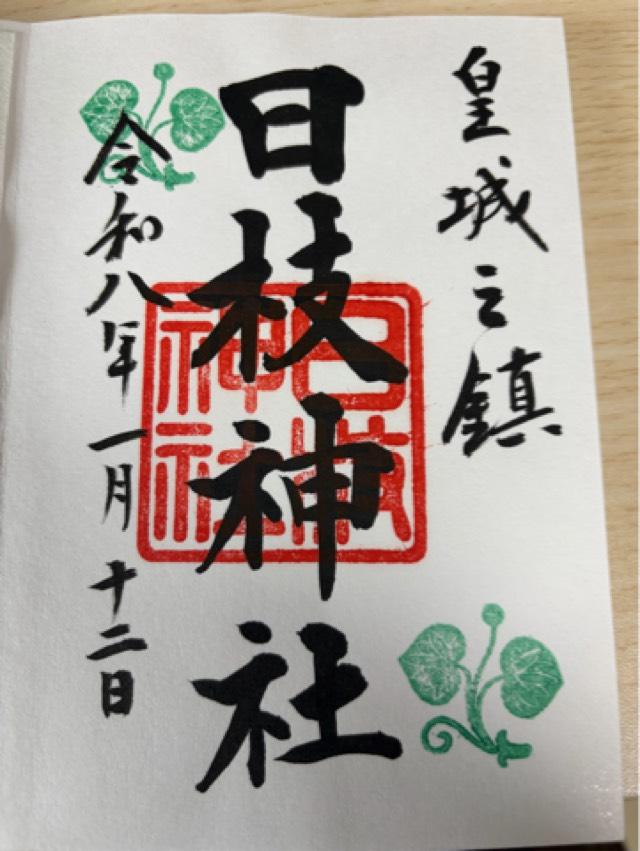 皇城之鎮
日枝神社
日枝神社
令和八年一月十二日